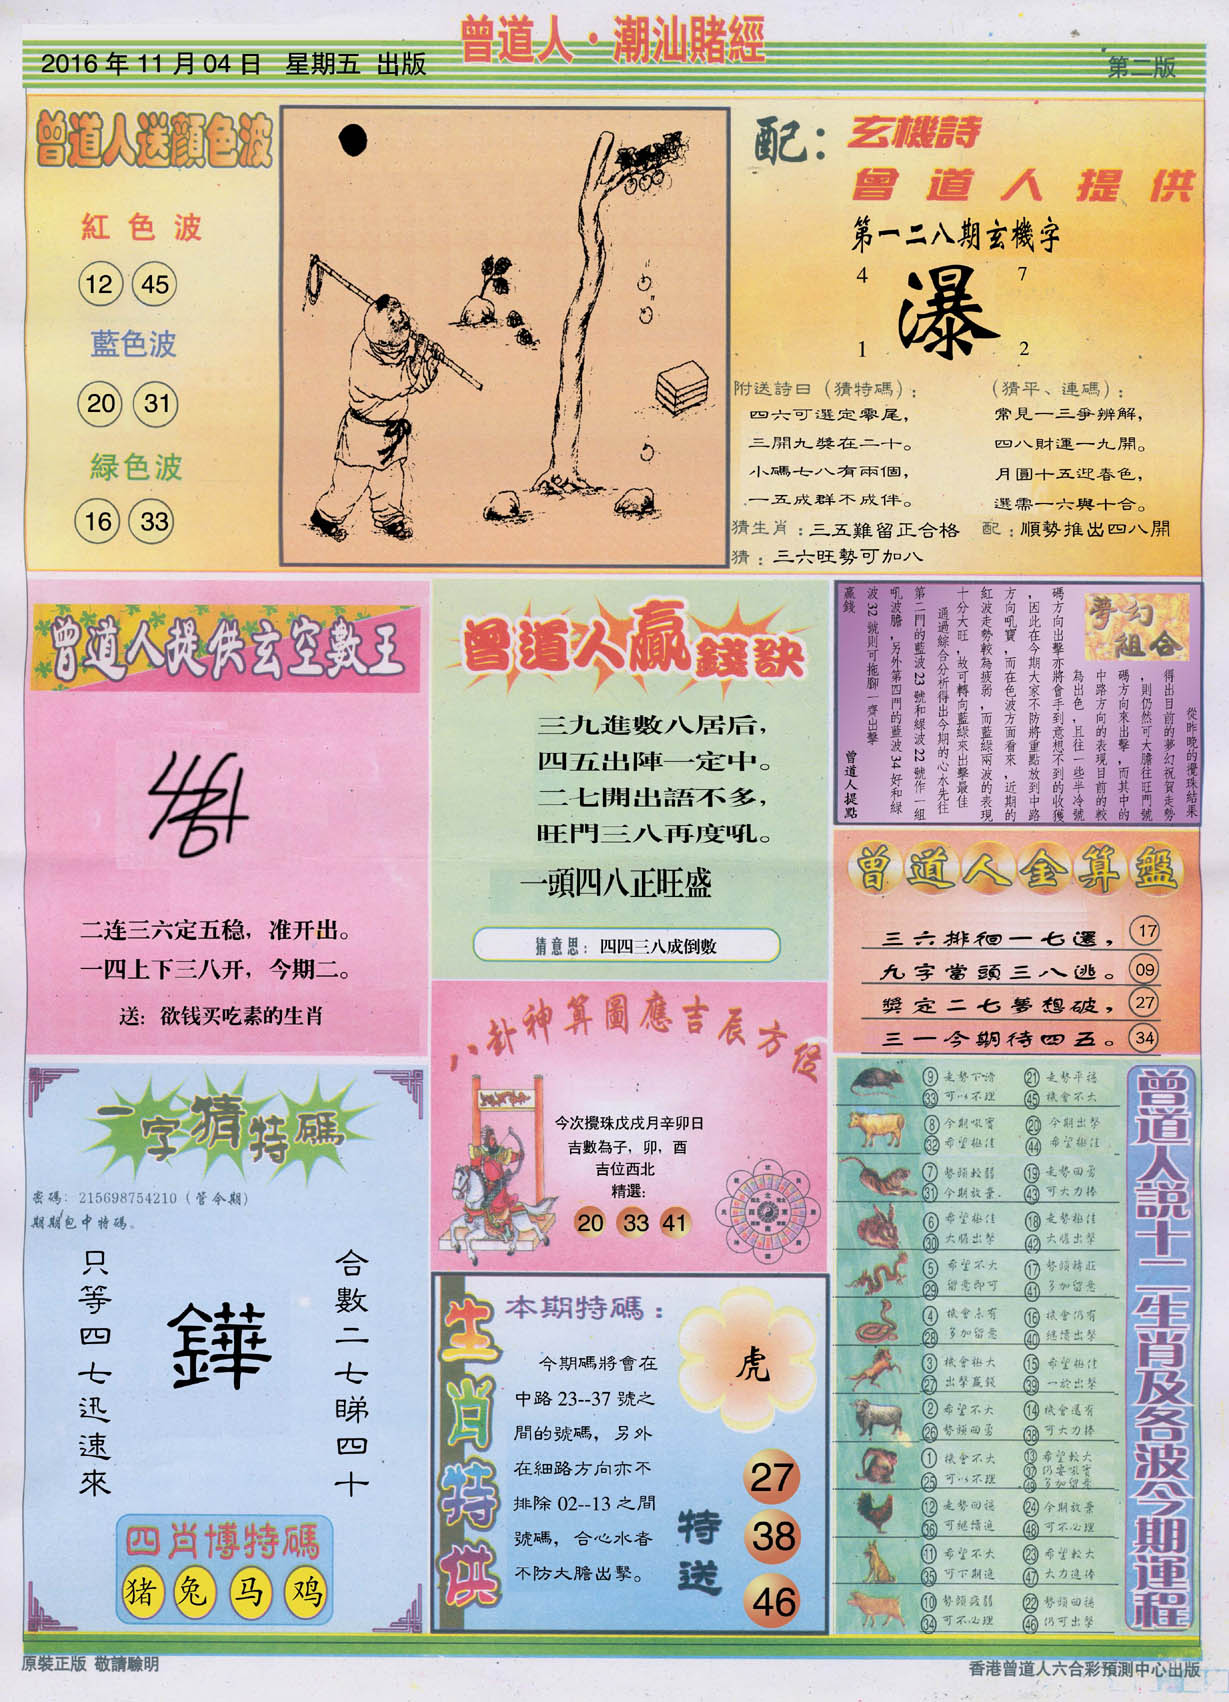 曾道人·潮汕賭經
2016年11月04日 星期五 出版
第二版
曾道人送顏色波
紅色波
12 45
藍色波
20 31
緑色波
16 33
配：玄機詩
曾道人提供
第一二八期玄機字
4 7
瀑
1 2
附送詩曰（猜特碼）：
四六可選定零尾，
三開九獎在二十。
小碼七八有兩個，
一五成群不成伴。
（猜平、連碼）：
常見一三爭辨解，
四八財運一九開。
月圓十五迎春色，
選需一六與十合。
猜生肖：三五難留正合格
配：順勢推出四八開
猜：三六旺勢可加八
曾道人提供玄空數王
二连三六定五稳，准开出。
一四上下三八开，今期二。
送：欲钱买吃素的生肖
曾道人贏錢訣
三九進數八居后，
四五出陣一定中。
二七開出語不多，
旺門三八再度吼。
一頭四八正旺盛
猜意思：四四三八成倒數
夢幻組合
從昨晚的攪珠結果
得出目前的夢幻祝賀走勢
，則仍然可大膽往旺門號
碼方向來出擊，而其中的
中路方向的表現目前的較
為出色，且往一些半冷號
碼方向出擊亦將會手到意想不到的收獲
，因此在今期大家不防將重點放到中路
方向吼寶，而在色波方面看來，近期的
紅波走勢較為疲弱，而藍綠兩波的表現
十分大旺，故可轉向藍綠來出擊最佳
通過綜合分析得出今期的心水先往
第二門的藍波23號和綠波22號作一組
吼波膽，另外第四門的藍波34好和綠
波32號則可拖腳一齊出擊
贏錢
曾道人提點
曾道人金算盤
三六排徊一七選， 17
九字當頭三八逃。 09
獎定二七夢想破， 27
三一今期待四五。 34
八卦神算圖應吉辰方位
今次攪珠戊戌月辛卯日
吉數為子，卯，酉
吉位西北
精選：
20 33 41
一字猜特碼
密碼：215698754210（管令期）
期期包中特碼。
合數二七睇四十
鏵
只等四七迅速來
四肖博特碼
猪 兔 马 鸡
生肖特供
本期特碼：
今期碼將會在
中路23--37號之
間的號碼，另外
在細路方向亦不
排除02--13之間
號碼，合心水者
不防大膽出擊。
虎
特送
27
38
46
曾道人説十二生肖及各波今期運程
9 走勢下滑 21 走勢平穩
33 可以不理 45 機會不大
8 今期吼寶 20 今期出擊
32 希望極佳 44 希望極佳
7 勢頭較弱 19 走勢回勇
31 今期放棄. 43 可大力捧
6 希望極佳 18 走勢極佳
30 大膽出擊 42 大膽出擊
5 希望不大 17 勢頭轉旺
29 留意即可 41 多加留意
4 機會未有 16 機會仍有
28 多加留意 40 繼續出擊
3 機會極大 15 希望極佳
27 出擊贏錢 39 一於出擊
2 希望不大 14 機會還有
26 勢頭回勇 38 可大力捧
1 機會不大 13 希望較大
25 可以不理 37 仍要吼寶
49 多加留意
12 走勢回穩 24 今期放棄
36 可繼續追 48 可不必理
11 希望不大 23 希望較大
35 可下期追 47 大力追捧
10 勢頭疲弱 22 勢頭回穩
34 可不必理 46 仍可出擊
原裝正版 敬請驗明
香港曾道人六合彩預測中心出版